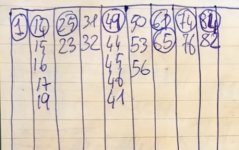 1 14 25 31 49 50 61 74 84
15 23 32 44 53 65 76 82
16 45 56
17 48
19 41